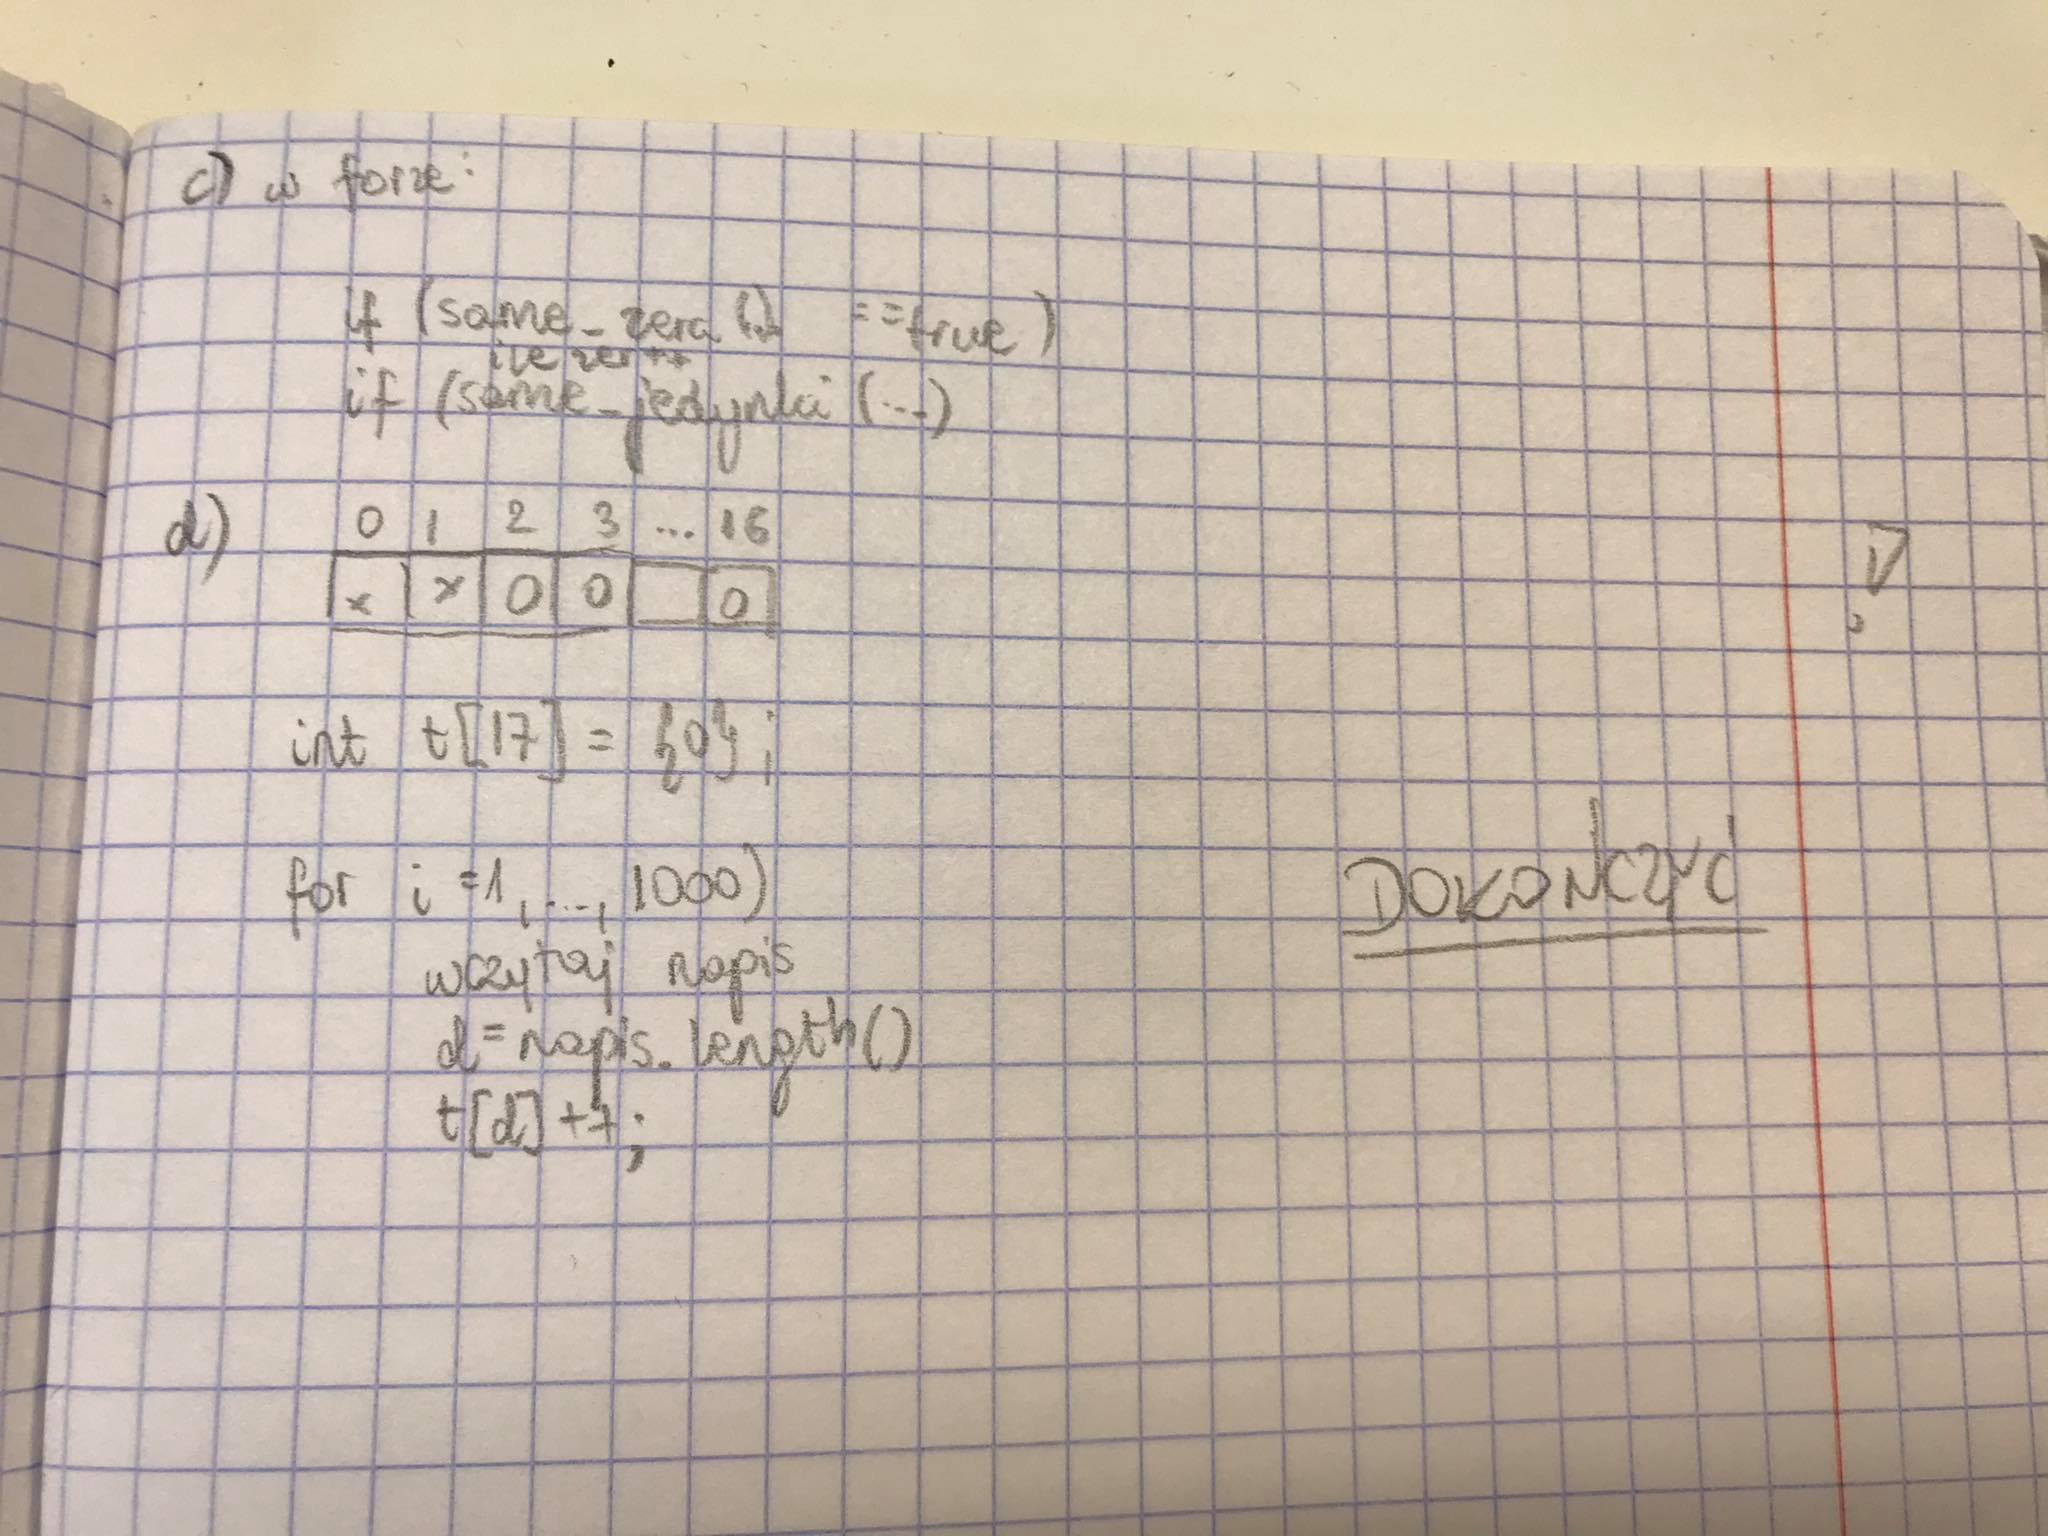 c) w forze:
if (same_zera (..) ==true)
ile zer++
if (same_jedynki (...)
d) 0 1 2 3 ... 16
x x 0 0 0
int t[17] = {0};
for i =1, ..., 1000)
DOKOŃCZYĆ
wczytaj napis
d=napis.length()
t[d]++;